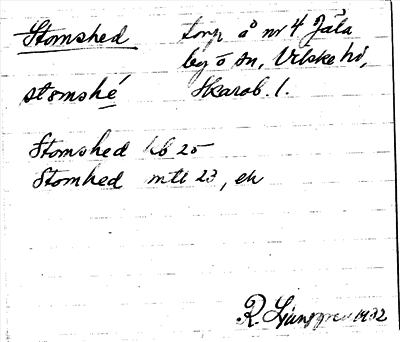 Stomshed torp å nr 4 Jäla
by ö sn, Vilske hd,
stomshé Skarab. l.
Stomshed hb 25
Stomhed mtl 23, ek
R. Ljunggren 1932